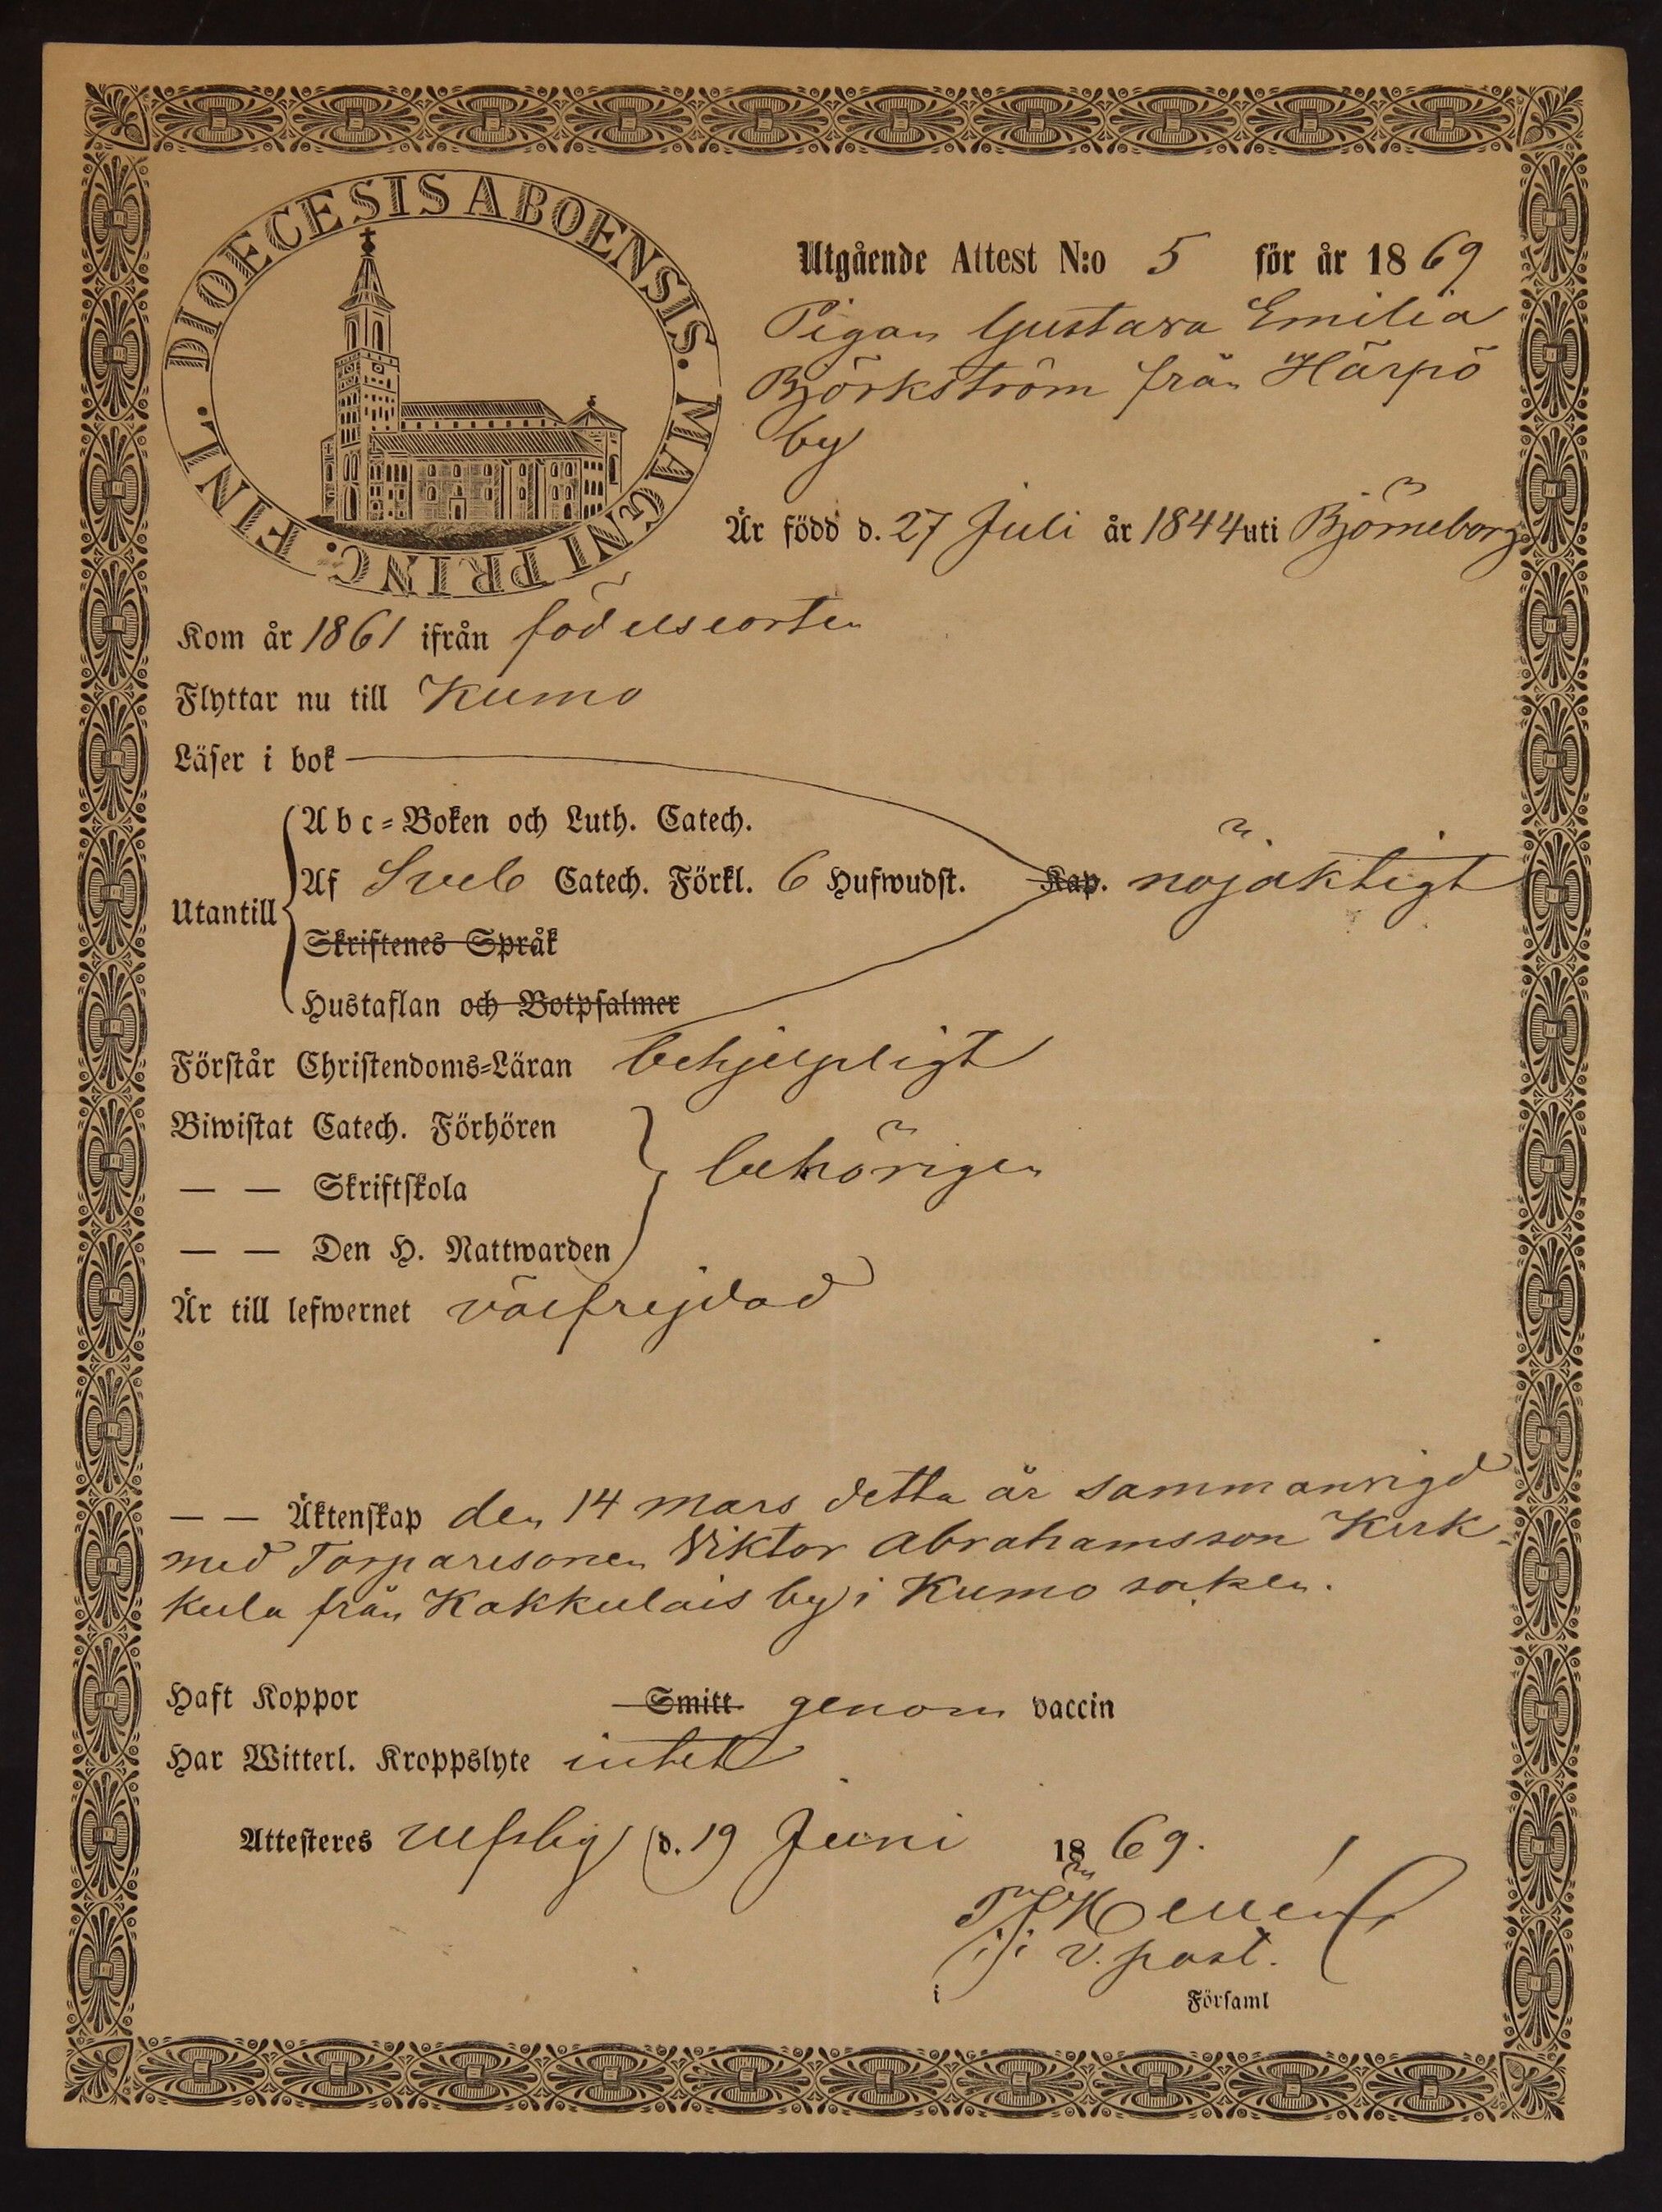 DIOECESIS ABOENSIS. MAGNI PRINC. FINL.
Utgående Attest N:o 5 för år 1869
Pigan Gustava Emilia
Björkström från Härpö
by
Är född d. 27 Juli år 1844 uti Björneborg
Kom år 1861 ifrån födelseorten
Flyttar nu till Kumo
Läser i bok
Abc-Boken och Luth. Catech.
Utantill
Af Sveb Catech. Förkl. 6 Hufwudst. Kap. nöjaktigt
Skriftenes Språk
Hustaflan och Botpsalmer
Förstår Christendoms-Läran behjelpligt
Biwistat Catech. Förhören
— — Skriftskola behörigen
— — Den H. Nattwarden
Är till lefwernet välfrejdad
— — Äktenskap den 14 mars detta år sammanvigd
med Torparesonen Viktor Abrahamsson Kirk
kula från Kakkulais by i Kumo socken.
Haft Koppor Smitt. genom vaccin
Har Witterl. Kroppslyte intet
Attesteres Ulfsby d. 19 Juni 1869.
v. past.
i Församl